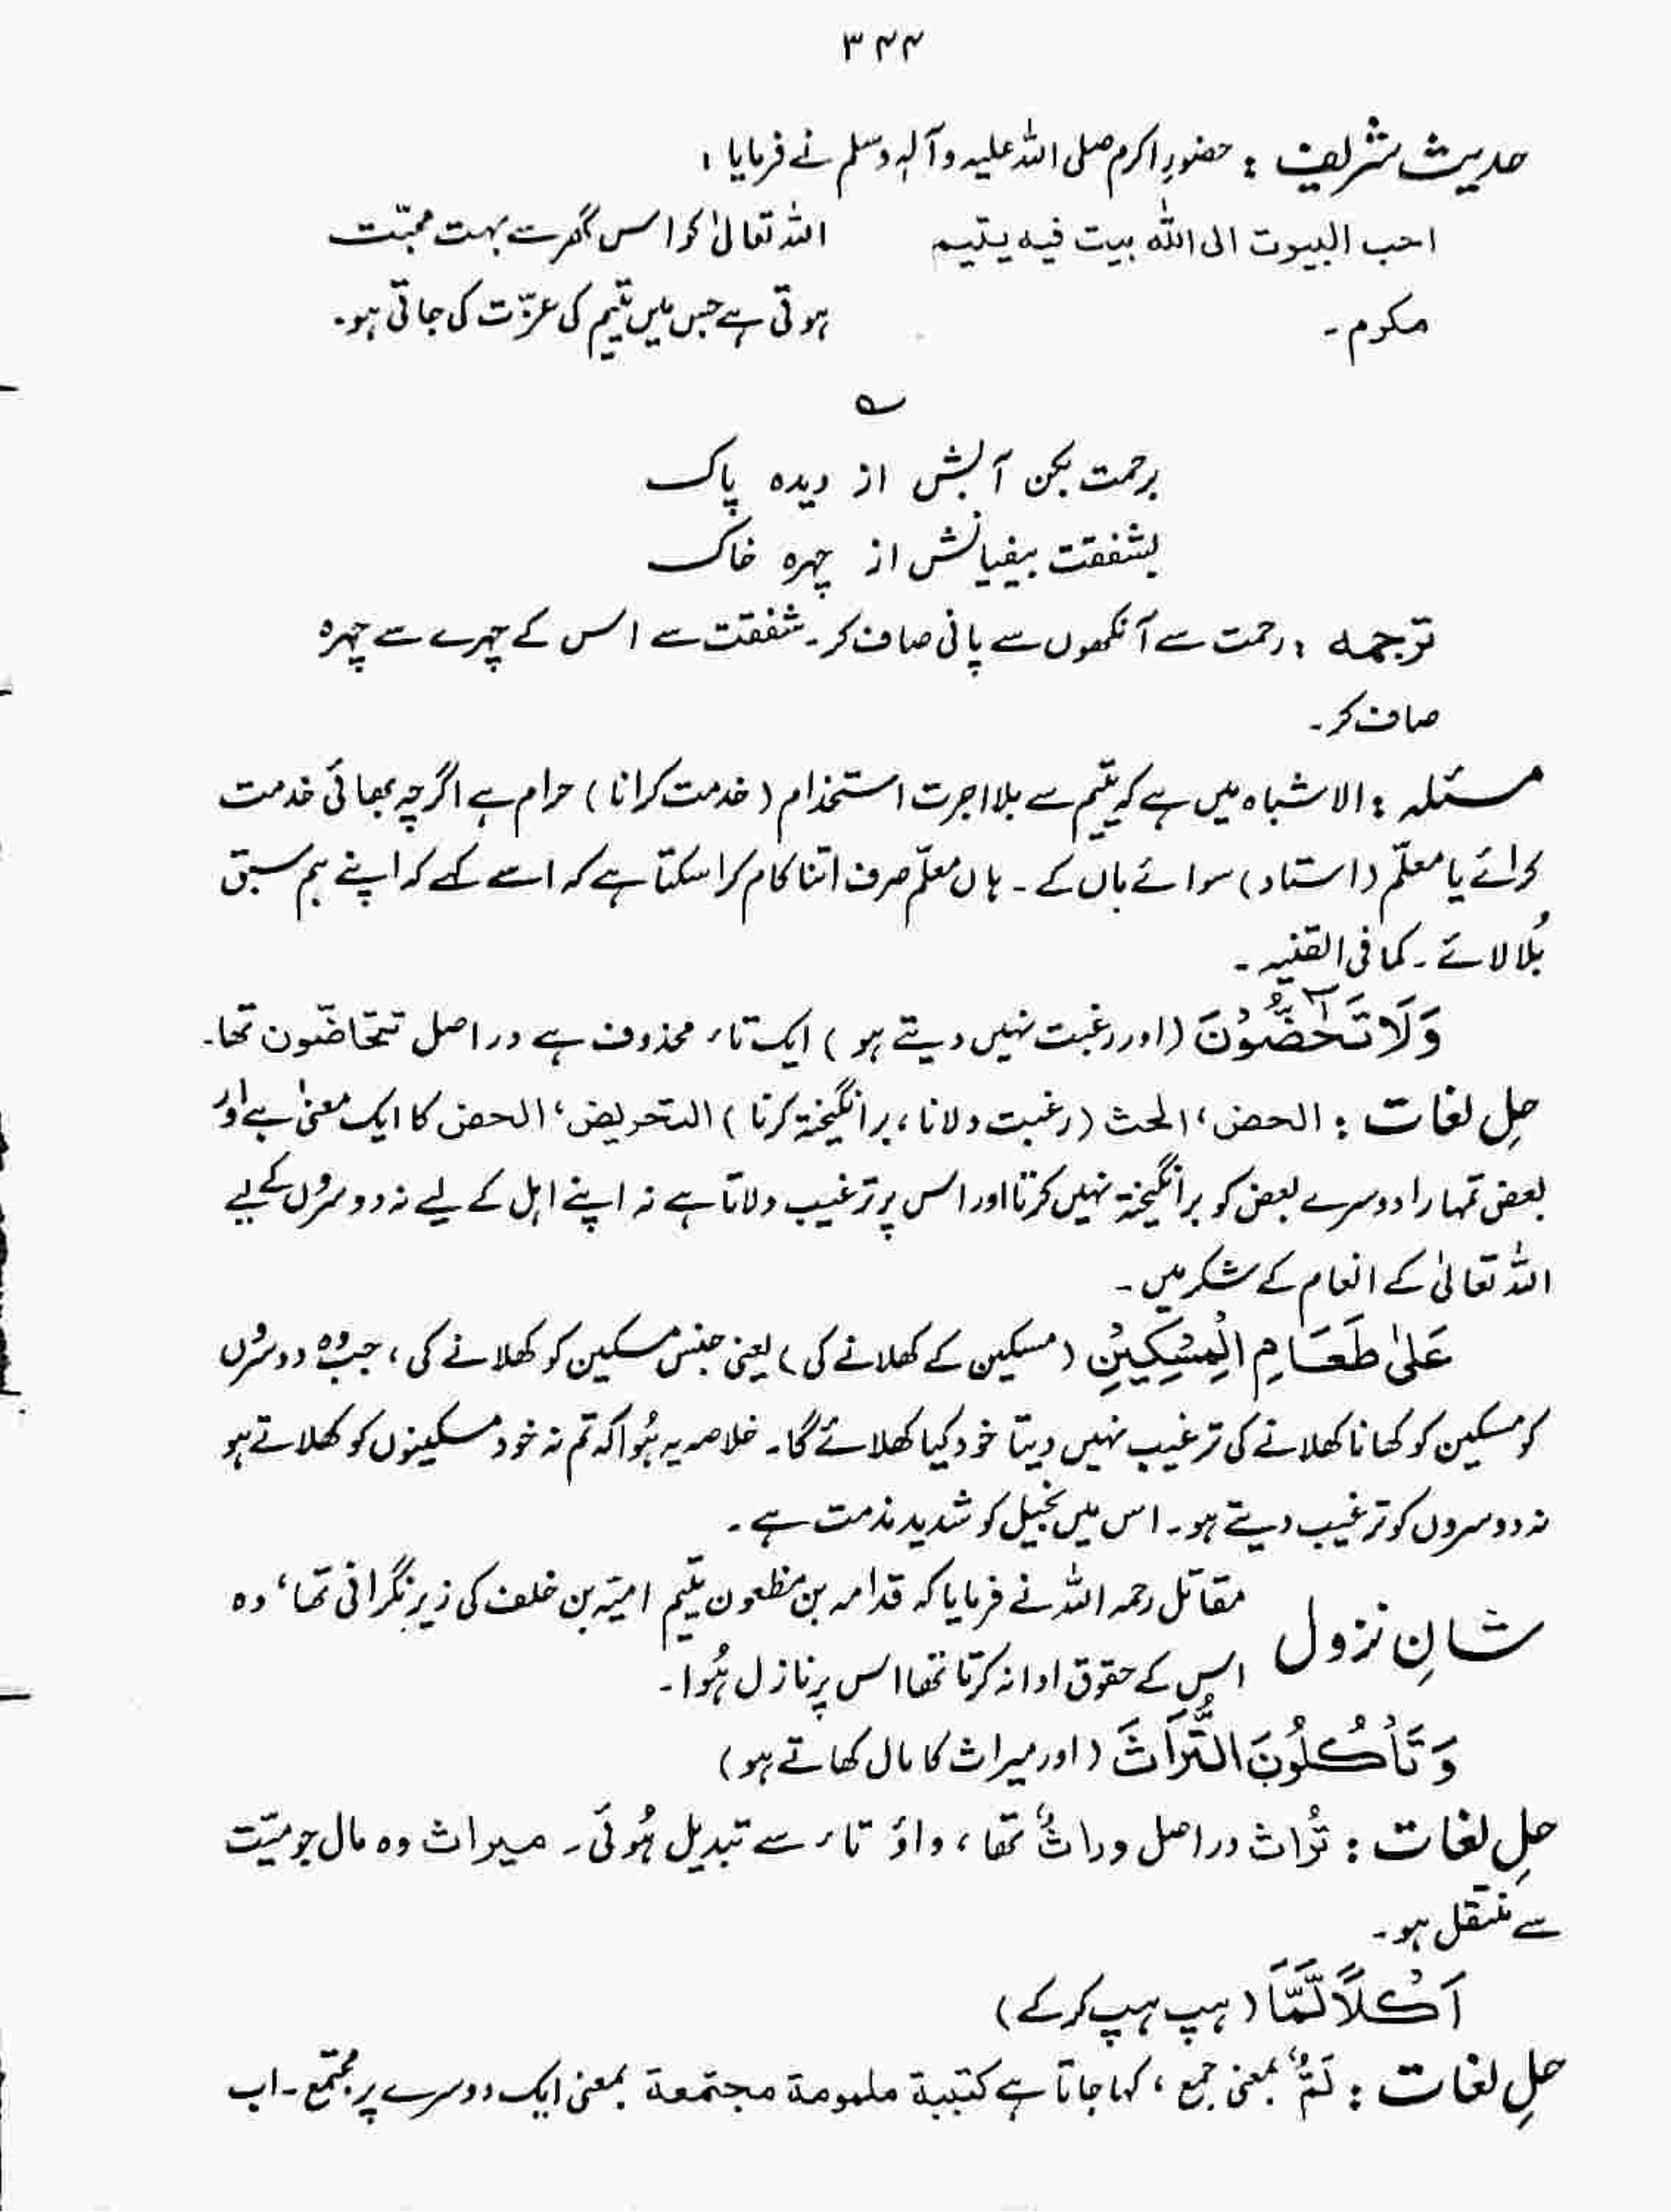 ۳۴۴
حدیث شریف : حضورِ اکرم صلی اللہ علیہ وآلہٖ وسلم نے فرمایا :
احب البیوت الی اللہ بیت فیہ یتیم
مکرم ۔
اللہ تعالیٰ کو اس گھر سے بہت محبّت
ہوتی ہے جس میں یتیم کی عزّت کی جاتی ہو۔
؎
برحمت بکن آبش از دیدہ پاک
بشفقت بیفیانش از چہرہ خاک
ترجمہ : رحمت سے آنکھوں سے پانی صاف کر۔ شفقت سے اس کے چہرے سے چہرہ
صاف کر ۔
مسئلہ : الاشباہ میں ہے کہ یتیم سے بلا اجرت استخذام (خدمت کرانا) حرام ہے اگرچہ بھائی خدمت
کرائے یا معلّم (استاد) سوائے باں کے ۔ ہاں معلّم صرف اتنا کام کرا سکتا ہے کہ اسے کہے کہ اپنے ہم سبق
بُلا لائے ۔ کما فی القنیہ ۔
وَلَا تَحٰٓضُّوْنَ (اور رغبت نہیں دیتے ہو) ایک تاء محذوف ہے دراصل تتحاضّون تھا۔
حلِ لغات : الحض ، الحث (رغبت دلانا ، برانگیختہ کرنا) التحریض ، الحض کا ایک معنیٰ ہے اور
بعض تمہارا دوسرے بعض کو برانگیختہ نہیں کرتا اور اس پر ترغیب دلاتا ہے نہ اپنے اہل کے لیے نہ دوسروں کے لیے
اللہ تعالیٰ کے انعام کے شکر میں ۔
عَلٰی طَعَامِ الْمِسْکِیْنِ (مسکین کے کھلانے کی) یعنی جنس مسکین کو کھلانے کی ، جب وُہ دوسروں
کو مسکین کو کھانا کھلانے کی ترغیب نہیں دیتا خود کیا کھلائے گا۔ خلاصہ یہ ہُوا کہ تم نہ خود مسکینوں کو کھلاتے ہو
نہ دوسروں کو ترغیب دیتے ہو۔ اس میں بخیل کو شدید مذمت ہے ۔
شانِ نزول مقاتل رحمہ اللہ نے فرمایا کہ قدامہ بن مظعون یتیم امیّہ بن خلف کی زیر نگرانی تھا ، وہ
اس کے حقوق ادا نہ کرتا تھا اس پر نازل ہُوا ۔
وَ تَاْکُلُوْنَ التُّرَاثَ (اور میراث کا مال کھاتے ہو)
حلِ لغات : تُراث دراصل وراثٌ تھا ، واؤ تاء سے تبدیل ہُوئی ۔ میراث وہ مال جو میّت
سے منتقل ہو ۔
اَکْلًا لَّمًّا (ہپ ہپ کر کے)
حلِ لغات : لَمٌّ بمعنی جمع ، کہا جاتا ہے کتیبة ملمومة مجتمعة بمعنی ایک دوسرے پر مجتمع ۔ اب